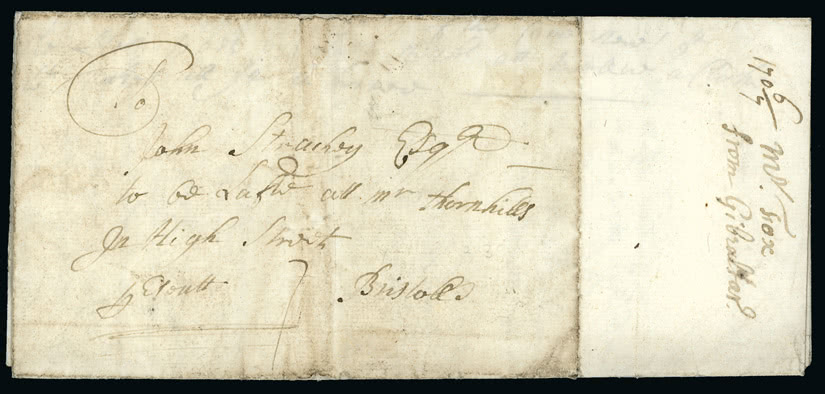 To
John Strachey Esqr
to be Lafte att mr Thornhills
In High Street
Bristoll
1706/7 Mr. Fox
from Gibraltar